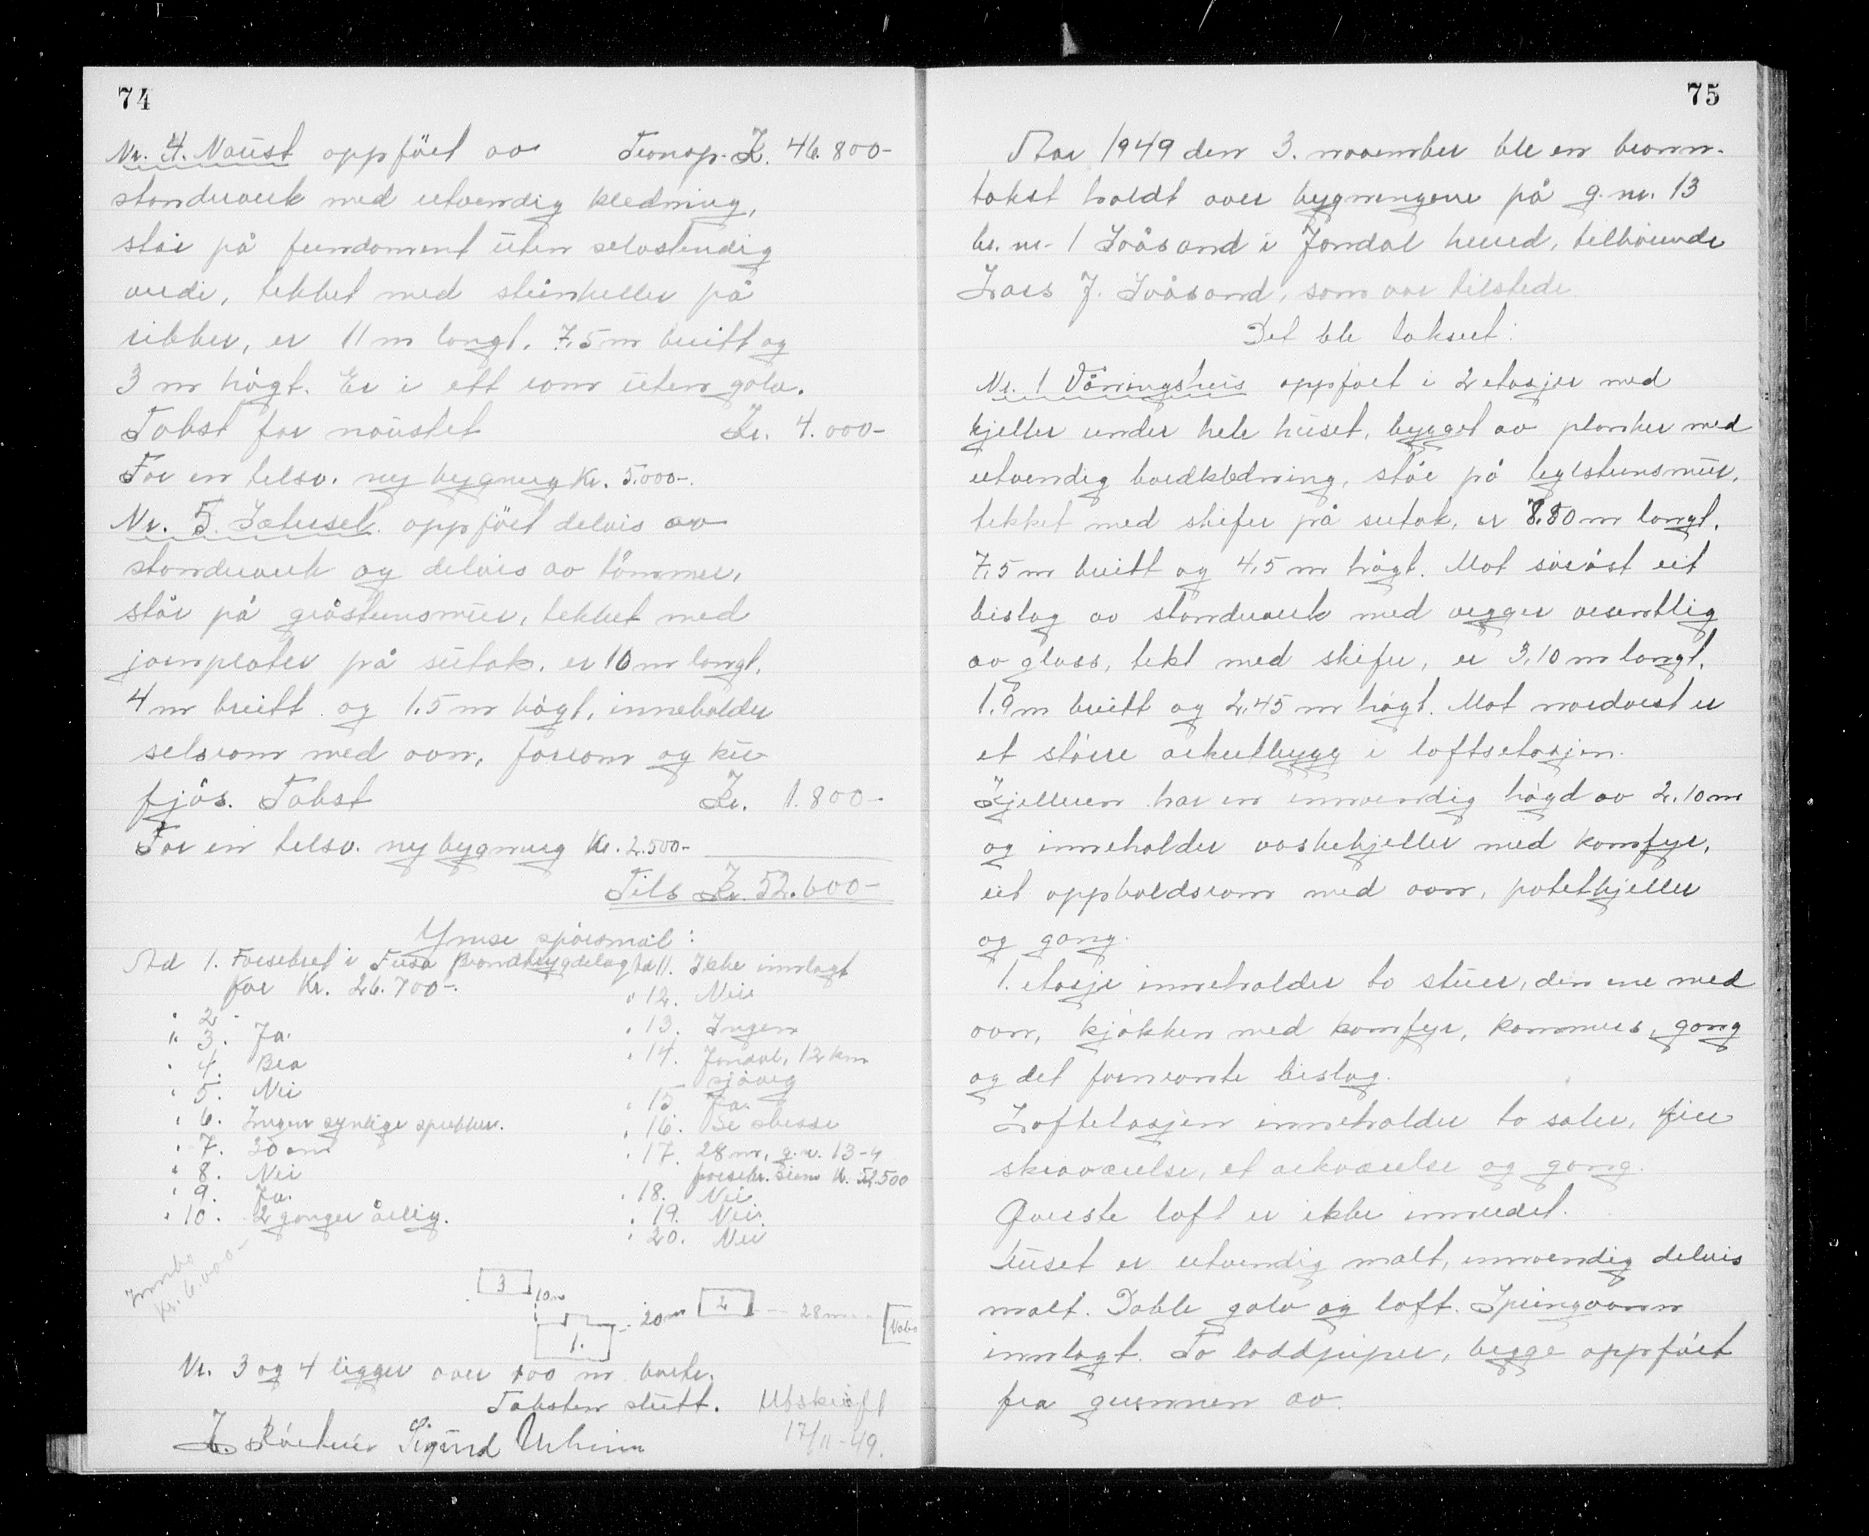 74
Nr. 4. Naust oppført av Transp. Kr. 46.800-
standverk med utvendig kledning,
står på fundament uten selvstendig
verdi, tekket med steinheller på
ribber, er 11 m langt, 7,5 m breitt og
3 m høgt. Er i ett rom uten golv.
Takst for naustet Kr. 4.000-
For en tilsv. ny bygning Kr. 5.000-.
Nr. 5. Sætersel. oppført delvis av
standverk og delvis av tømmer,
står på gråsteinsmur, tekket med
jernplater på sutak, er 10 m langt,
4 m breitt og 1.5 m høgt, inneholder
selsrom med ovn, forrom og ku-
fjøs. Takst Kr. 1.800-
For ein tilsv. ny bygning Kr. 2.500-
Tils Kr. 52.600-
Ymse spørsmål:
Ad 1. Forsikret i Fusa Brandbygdelag
for Kr. 26.700-.
" 2 -
" 3. Ja.
" 4. Bra
" 5. Nei
" 6. Ingen synlige sprekker.
" 7. 30 cm
" 8. Nei
" 9. Ja.
" 10. 2 ganger årlig.
Ad 11. Ikke innlagt
" 12. Nei
" 13. Ingen
" 14. Jondal, 12 km
sjøveg
" 15 Ja.
" 16. Be
" 17. 28 m, g.n. 13-4
forsikr. Kr. 52.500
" 18. Nei
" 19. Nei
" 20. Nei
Innbo
Kr. 6.000-
3
10m
1.
20m
2
28m
Nabo
Nr. 3 og 4 ligger over 100 m borte.
Taksten slutt. Utskrift
17/11-49.
Sigurd Urheim
75
Aar 1949 den 3. november ble en brann-
takst holdt over bygningene på g. nr. 13
br. nr. 1 Svåsand i Jondal herred, tilhørende
Lars J. Svåsand, som var tilstede.
Det ble taksert:
Nr. 1 Våningshus oppført i 2 etasjer med
kjeller under hele huset, bygget av planker med
utvendig bordkledning, står på teglsteinsmur,
tekket med skifer på sutak, er 8.80 m langt,
7,5 m breitt og 4,5 m høgt. Mot sørøst eit
bislag av standverk med vegger vesentlig
av glass, tekt med skifer, er 3,10 m langt,
1.9 m breitt og 2,45 m høgt. Mot nordvest er
et større arkutbygg i loftsetasjen.
Kjelleren har en innvendig høgd av 2,10 m
og inneholder vaskekjeller med komfyr,
eit oppholdsrom med ovn, potetkjeller
og gang.
1. etasje inneholder to stuer, den ene med
ovn, kjøkken med komfyr, kammers, gang
og det fornevnte bislag.
Loftetasjen inneholder to saler, fire
skråværelse, et arkværelse og gang.
Øverste loft er ikke innredet.
Huset er utvendig malt, innvendig delvis
malt. Doble golv og loft. Springvann
innlagt. To loddpiper, begge oppført
fra grunnen av